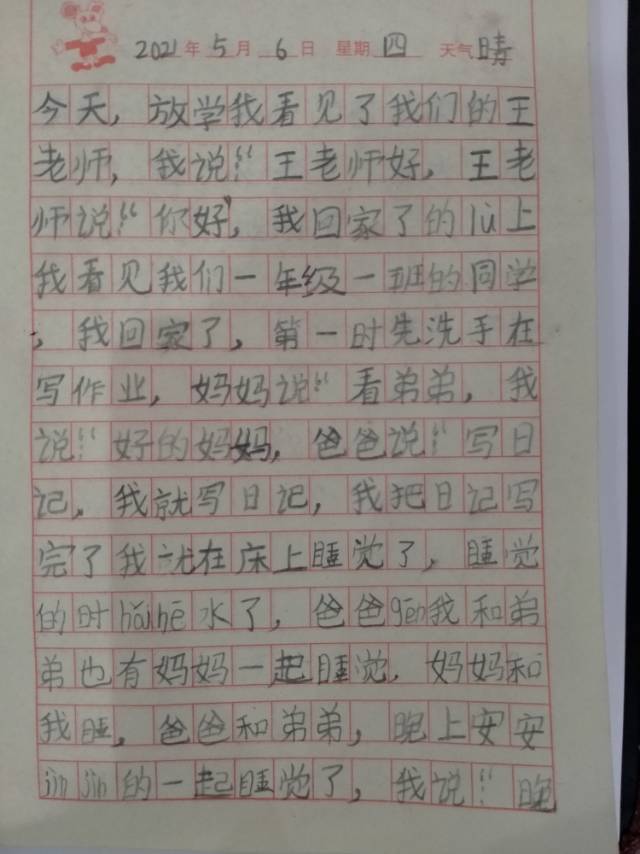 2021年5月6日 星期四 天气晴
今天，放学我看见了我们的王
老师，我说：“王老师好，王老
师说：“你好”，我回家了的lù上
我看见我们一年级一班的同学
，我回家了，第一时先洗手在
写作业，妈妈说：“看弟弟，我
说：“好的妈妈，爸爸说：“写日
记，我就写日记，我把日记写
完了我就在床上睡觉了，睡觉
的时hǎihē水了，爸爸gēn我和弟
弟也有妈妈一起睡觉，妈妈和
我睡，爸爸和弟弟，晚上安安
jìn jìn的一起睡觉了，我说：“晚